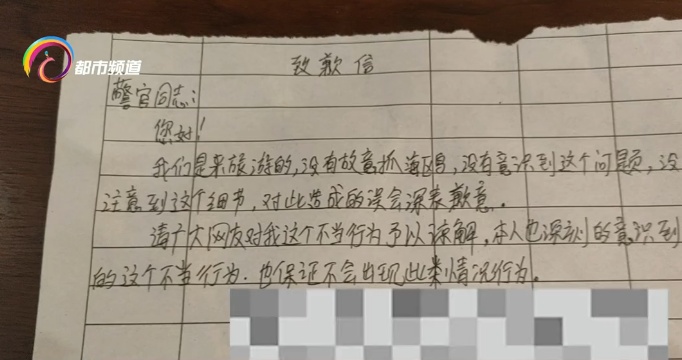 都市频道
致歉信
警官同志:
您好!
我们是来旅游的,没有故意抓海鸥,没有意识到这个问题,没
注意到这个细节,对此造成的误会深表歉意。
请广大网友对我这个不当行为予以谅解,本人也深刻的意识到
的这个不当行为.也保证不会出现此类情况行为。